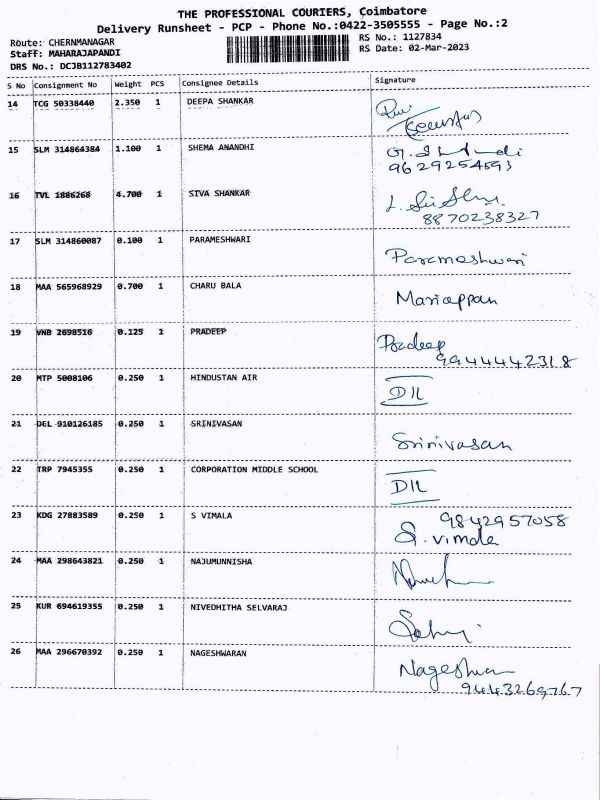 THE PROFESSIONAL COURIERS, Coimbatore
Delivery Runsheet - PCP - Phone No.:0422-3505555 - Page No.:2
Route: CHERNMANAGAR RS No.: 1127834
Staff: MAHARAJAPANDI RS Date: 02-Mar-2023
DRS No.: DCJB112783402
S No Consignment No Weight PCS Consignee Details Signature
14 TCG 50338440 2.350 1 DEEPA SHANKAR
15 SLM 314864384 1.100 1 SHEMA ANANDHI
9629254693
16 TVL 1886268 4.700 1 SIVA SHANKAR
8870238327
17 SLM 314860087 0.100 1 PARAMESHWARI
Parameshwari
18 MAA 565968929 0.700 1 CHARU BALA
Mariappan
19 VNB 2698516 0.125 1 PRADEEP
Pradeep
9944442318
20 MTP 5008106 0.250 1 HINDUSTAN AIR
DIL
21 DEL 910126185 0.250 1 SRINIVASAN
Srinivasan
22 TRP 7945355 0.250 1 CORPORATION MIDDLE SCHOOL
DIL
23 KDG 27883589 0.250 1 S VIMALA
9842957058
S. vimala
24 MAA 298643821 0.250 1 NAJUMUNNISHA
25 KUR 694619355 0.250 1 NIVEDHITHA SELVARAJ
26 MAA 296670392 0.250 1 NAGESHWARAN
Nageshwan
9443269767